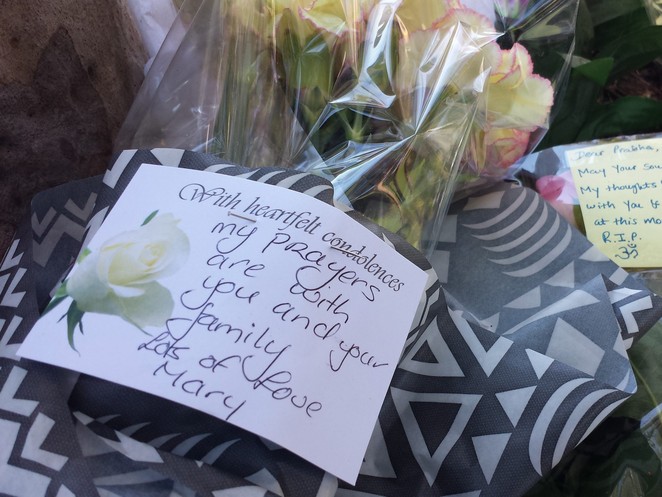 With heartfelt condolences
my prayers
are with
you and your
family
Lots of love
Mary
Dear Prabha,
May Your Sou
My thoughts
with You &
at this mo
R.I.P.
ॐ